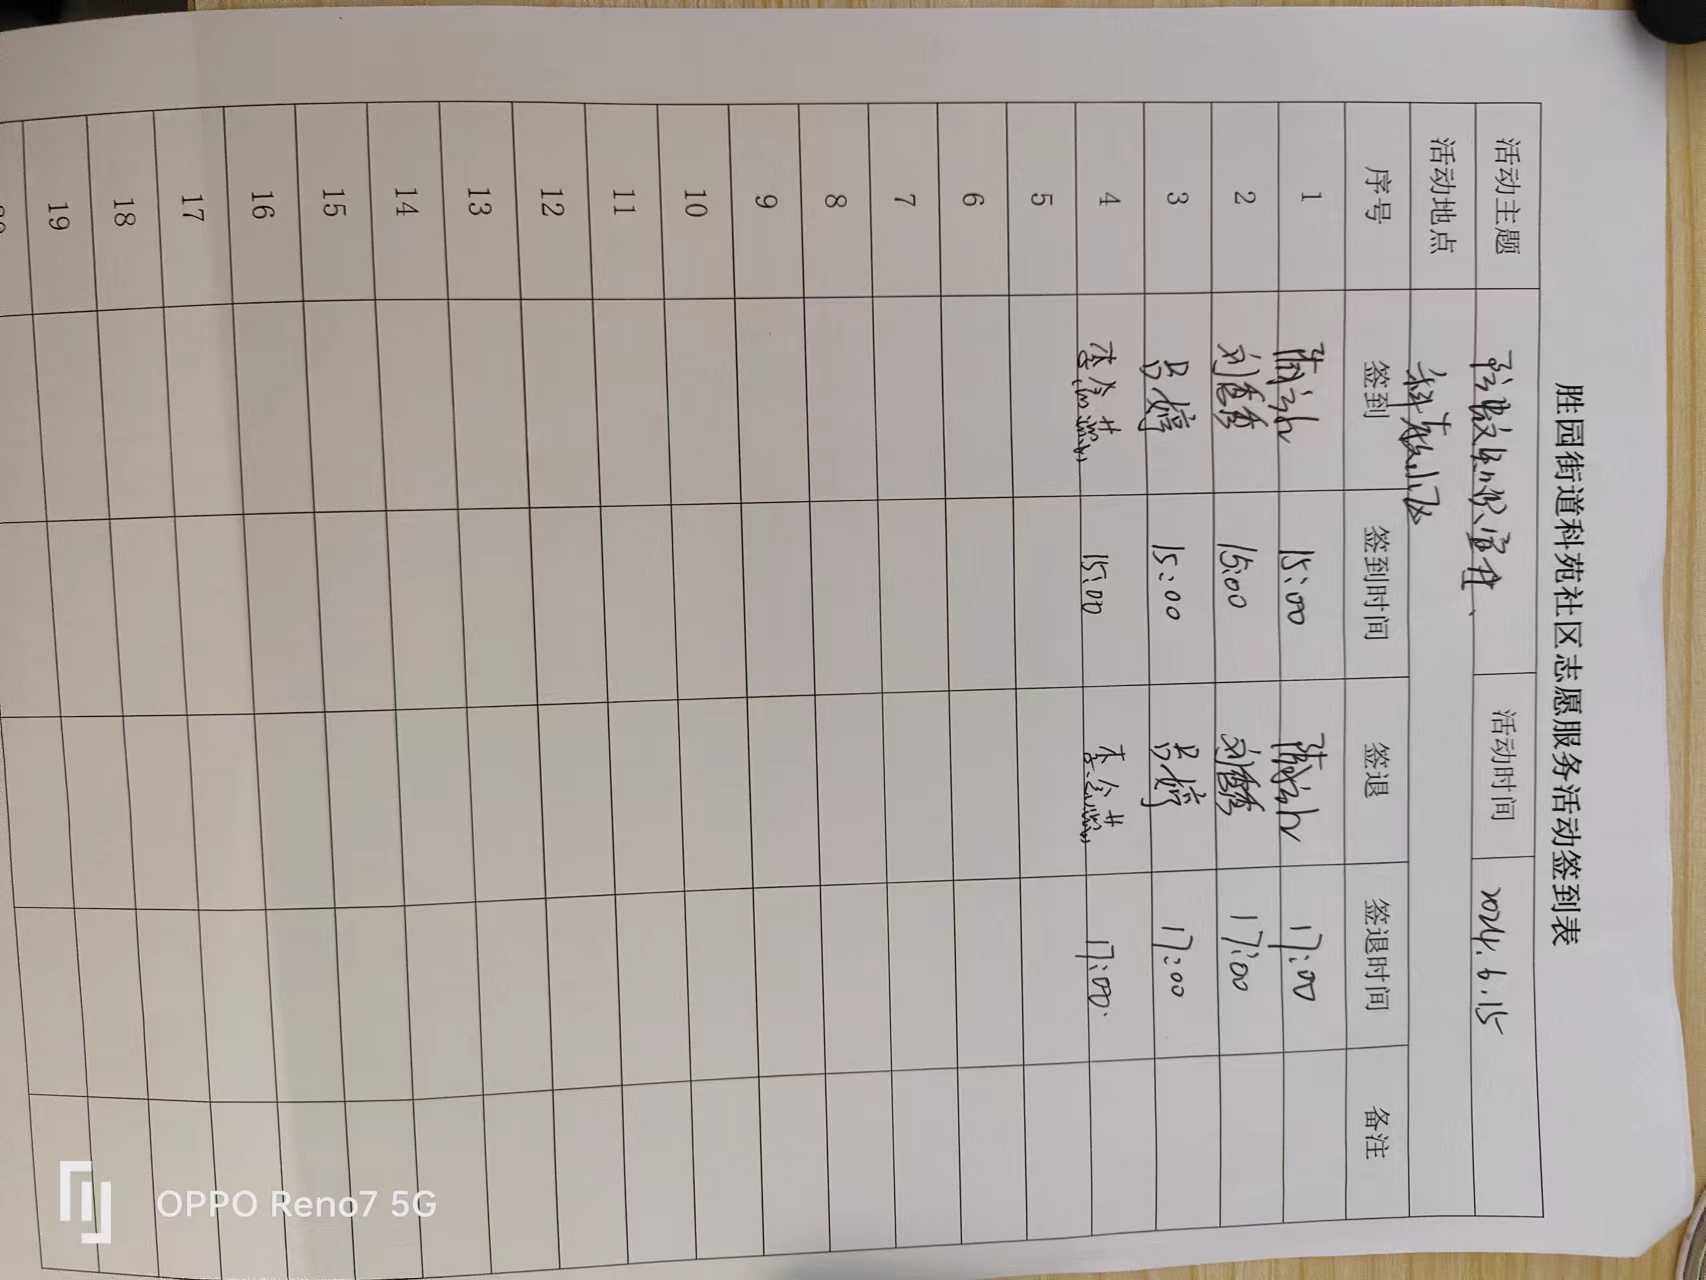 胜园街道科苑社区志愿服务活动签到表
活动主题 活动时间 2024.6.15
活动地点 科苑小区
序号 签到 签到时间 签退 签退时间 备注
1 15:00 17:00
2 刘香秀 15:00 刘香秀 17:00
3 吕婷 15:00 吕婷 17:00
4 15:00 17:00
5
6
7
8
9
10
11
12
13
14
15
16
17
18
19
OPPO Reno7 5G